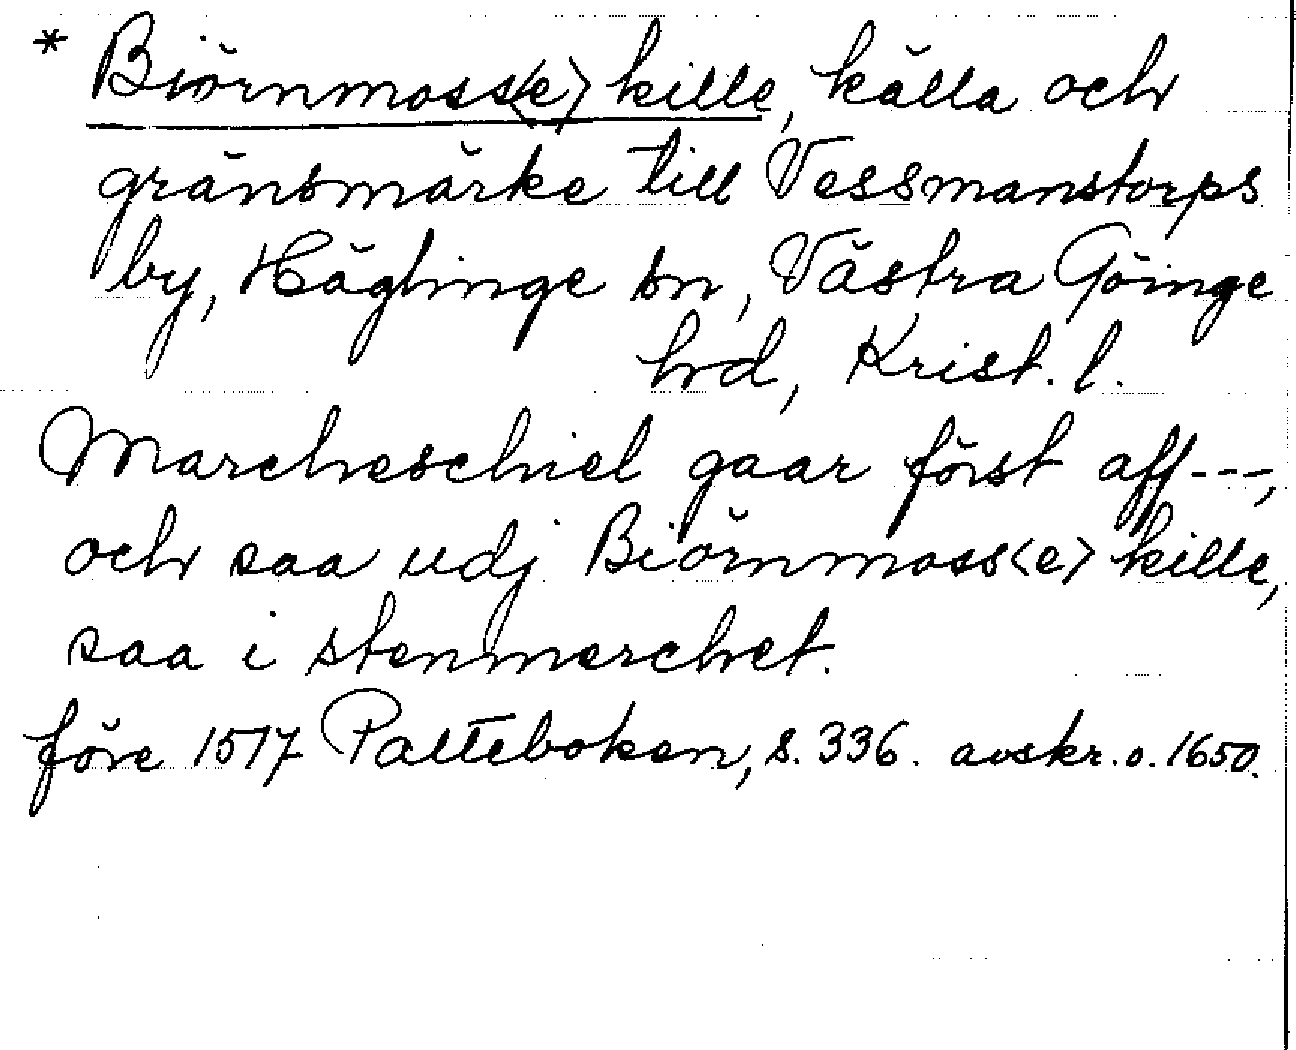 * Biörnmoss<e> kille, källa och
gränsmärke till Vessmanstorps
by, Häglinge sn, Västra Göinge
hrd, Krist. l.
Marcheschiel gaar först aff---,
och saa udj Biörnmoss<e> kille,
saa i stenmerchet.
före 1517 Palteboken, s. 336. avskr. o. 1650.